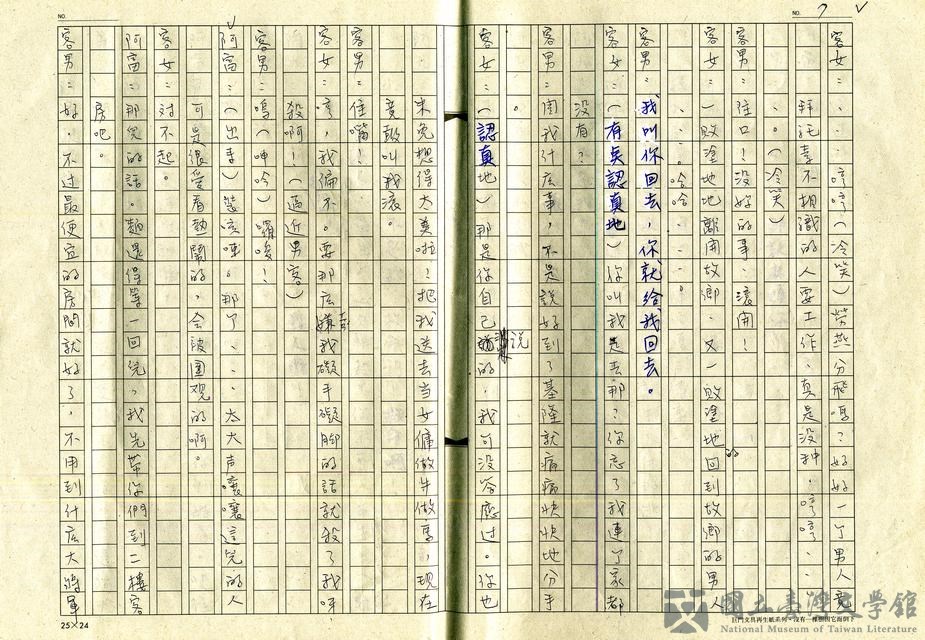 NO. 7
客女：……哼哼（冷笑）勞燕分飛嗎？好好一个男人竟
拜託素不相識的人要工作、真是没种．哼哼……
…。（冷笑）
客男：住口！没好的事、滾開！
客女：一敗塗地地離開故鄉、又一敗塗地的回到故鄉的男人
……。哈哈……。
客男：我叫你回去，你就給我回去。
客女：（有臭認真地）你叫我是去那？你忘了我連了家都
没有？
客男：関我什庅事，不是説好到了基隆就痛痛快快地分手
。
客女：（認真地）那是你自己説的．我可没答應过。你也
未免想得太美啦！把我送去当女傭做牛做馬，現在
竟敢叫我滾。
客男：住嘴！
客女：哼，我偏不。要那庅嫌我礙手礙脚的話就殺了我呀
殺啊！（逼近男客）
客男：嗚（呻吟）囉唆！
阿富：（出手）裝咳嗽。那了、、太大声嚷嚷這兒的人
可是很受看熱鬧的，会被囲观的啊。
客女：対不起。
阿富：那兒的話。麵還得等一回兒，我先帶你們到二樓客
房吧。
客男：好．不过最便宜的房間就好了，不用到什庅大將軍
NO.
25×24
國立臺灣文學館
National Museum of Taiwan Literature